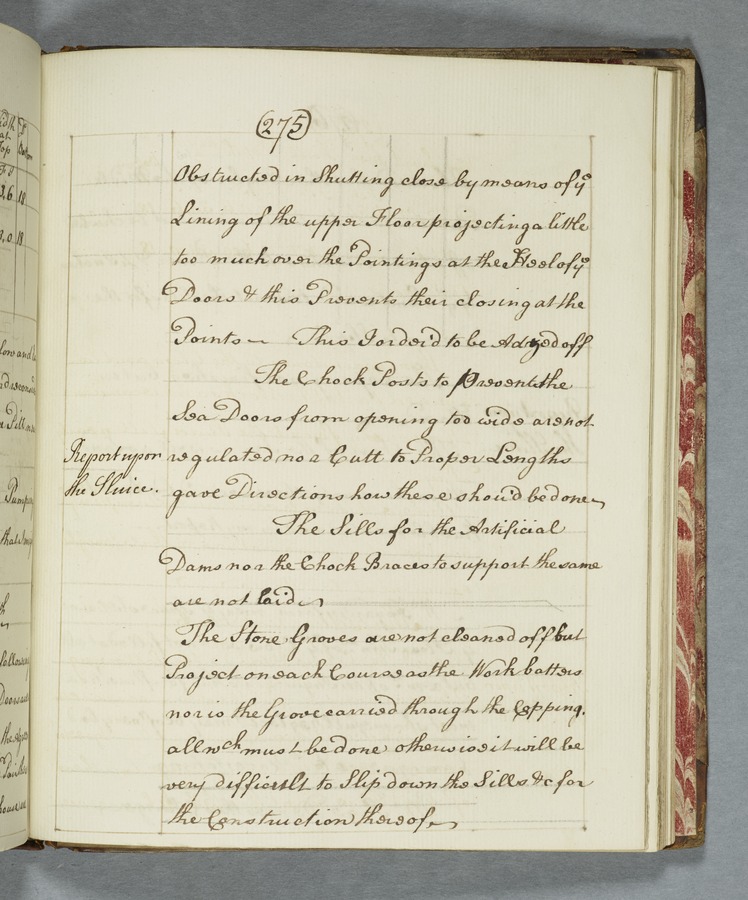 (275)
Obstructed in Shutting close by means of ye
Lining of the upper Floor projecting a little
too much over the Pointings at the Heel of ye
Doors & this Prevents their closing at the
Points — This I order'd to be Adzed off
The Chock Posts to Prevent the
Sea Doors from opening too wide are not
Report upon
the Sluice.
regulated nor Cutt to Proper Lengths
gave Directions how these shou'd be done
The Sills for the Artificial
Dams nor the Chock Braces to support the same
are not laid
The Stone Groves are not cleaned off but
Project on each Course as the Work batters
nor is the Grove carried through the Copping.
all wch must be done otherwise it will be
very difficult to Slip down the Sills &c for
the Construction thereof